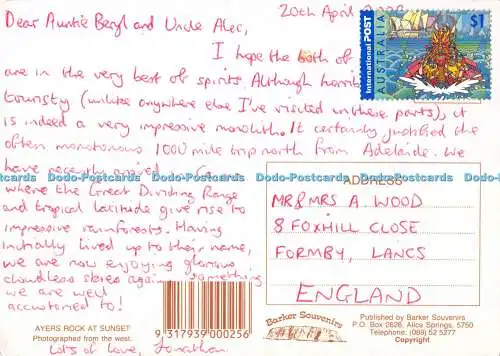 Dear Auntie Beryl and Uncle Alec,
20th April
I hope the both of
are in the very best of spirits. Although horribly
touristy (unlike anywhere else I've visited in these parts), it
is indeed a very impressive monolith. It certainly justified the
often monotonous 1000 mile trip north from Adelaide. We
have recently arrived in
where the Great Dividing Range
and tropical latitude give rise to
impressive rainforests. Having
initially lived up to their name,
we are now enjoying glorious
cloudless skies again – something
we are well
accustomed to!
Lots of love, Jonathan
AYERS ROCK AT SUNSET
Photographed from the west.
9 317939 000256
International POST
AUSTRALIA
$1
ADDRESS
MR & MRS A. WOOD
8 FOXHILL CLOSE
FORMBY, LANCS
ENGLAND
Barker Souvenirs
Published by Barker Souvenirs
P.O. Box 2626, Alice Springs, 5750
Telephone: (089) 52 5277
Copyright
Dodo-Postcards Dodo-Postcards Dodo-Postcards Dodo-Postcards